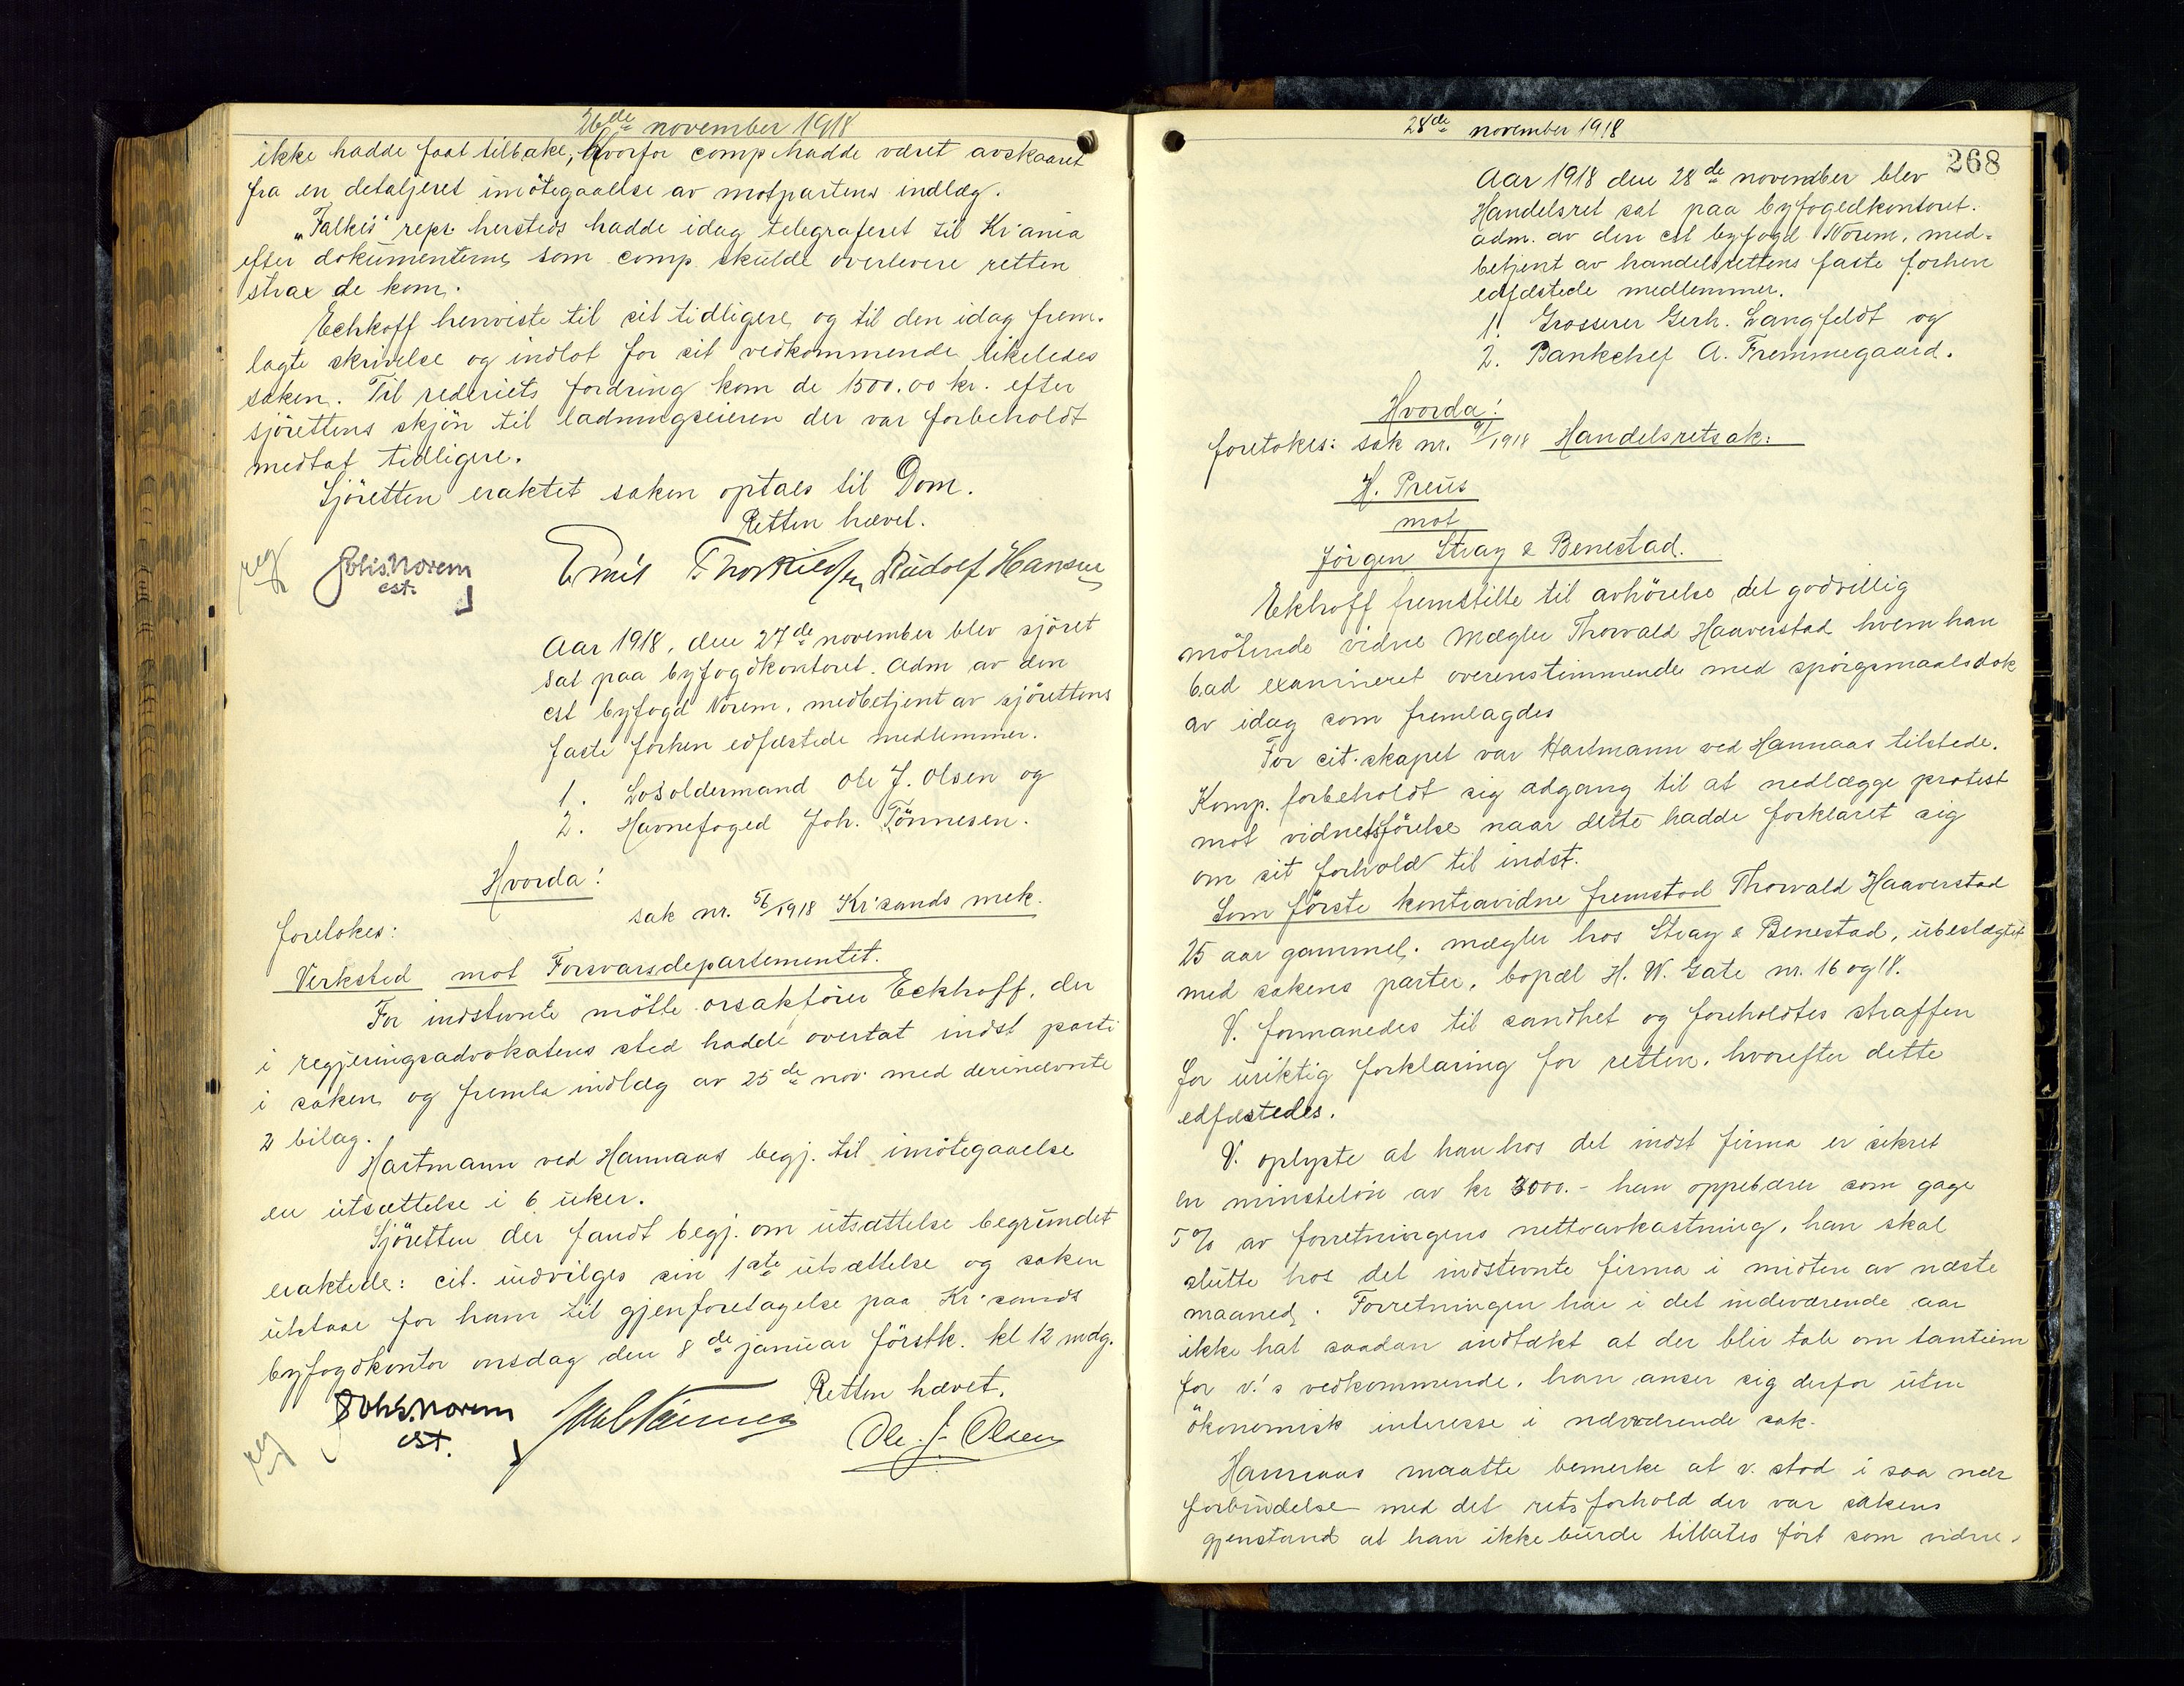 26de november 1918
ikke hadde faat tilbake, hvorfor comp hadde været avskaaret
fra en detaljeret imötegaaelse av motpartens indlæg.
"Falkes" repr. hersteds hadde idag telegraferet til Kr'ania
efter dokumenterne som comp. skulde overlevere retten
strax de kom.
Echkoff henviste til sit tidligere og til den idag frem-
lagte skrivelse og indlot for sit vedkommende likeledes
saken. Til rederiets fordring kom de 1500.00 kr. efter
sjörettens skjön til ladningseieren der var forbeholdt
medtat tidligere.
Sjöretten eraktet saken optaes til Dom.
Retten hævet.
reg
Johs. Norem
cst.
Emil Thorkildsen Rudolf Hansen
Aar 1918, den 27de november blev sjöret
sat paa byfogdkontoret. Adm av den
cst byfogd Norem, medbetjent av sjörettens
faste forhen edfæstede medlemmer.
1. Losoldermand Ole J. Olsen og
2. Havnefoged Joh. Tönnesen.
Hvorda!
foretokes: sak nr. 56/1918 Kr'sands mek.
Verksted mot Forsvarsdepartementet.
For indstevnte mötte orsakförer Eckhoff, der
i regjeringsadvokatens sted hadde overtat indst parti
i saken og fremla indlæg av 25de nov. med derinævnte
2 bilag.
Hartmann ved Hannaas begj. til imötegaaelse
en utsættelse i 6 uker.
Sjöretten der fandt begj. om utsættelse begrundet
eraktede: cit. indvilges sin 1ste utsættelse og saken
utstaar for ham til gjenforetagelse paa Kr'sands
byfogdkontor onsdag den 8de januar förstk. kl 12 mdg.
Retten hævet.
reg
Johs. Norem
cst.
Ole J. Olsen
28de november 1918
268
Aar 1918 den 28de november blev
Handelsret sat paa byfogedkontoret.
adm. av den cst byfogd Norem, med-
betjent av handelsrettens faste forhen
edfæstede medlemmer.
1. Grosserer Gerh. Langfeldt og
2. Bankchef A. Fremmegaard.
Hvorda!
foretokes: sak nr. /1918 Handelsretsak:
H. Preus
mot
Jörgen Stray & Benestad.
Ekhoff fremstilte til avhörelse det godvillig
mötende vidne Mægler Thorvald Haaverstad hvem han
bad examineret overenstimmende med spörgsmaalsdok
av idag som fremlagdes
For cit.skapet var Hartmann ved Hannaas tilstede.
Komp. forbeholdt sig adgang til at nedlægge protest
mot vidnetsförelse naar dette hadde forklaret sig
om sit forhold til indst.
Som förste kontravidne fremstod Thorvald Haaverstad
25 aar gammel, mægler hos Stray & Benestad, ubeslægtet
med sakens parter, bopæl H. W. Gate nr. 16 og 18.
V. formanedes til sandhet og foreholdtes straffen
for uriktig forklaring for retten, hvorefter dette
edfæstedes.
V. oplyste at han hos det indst firma er sikret
en minstelön av kr 3000.- han oppebærer som gage
5% av forretningens nettoavkastning, han skal
slutte hos det indstevnte firma i midten av næste
maaned. Forretningen har i det indeværende aar
ikke hat saadan indtækt at der blir tale om tantieme
for v.'s vedkommende, han anser sig derfor uten
ökonomisk interesse i nærværende sak.
Hannaas maatte bemerke at v. stod i saa nær
forbindelse med det retsforhold der var sakens
gjenstand at han ikke burde tillates fört som vidne.